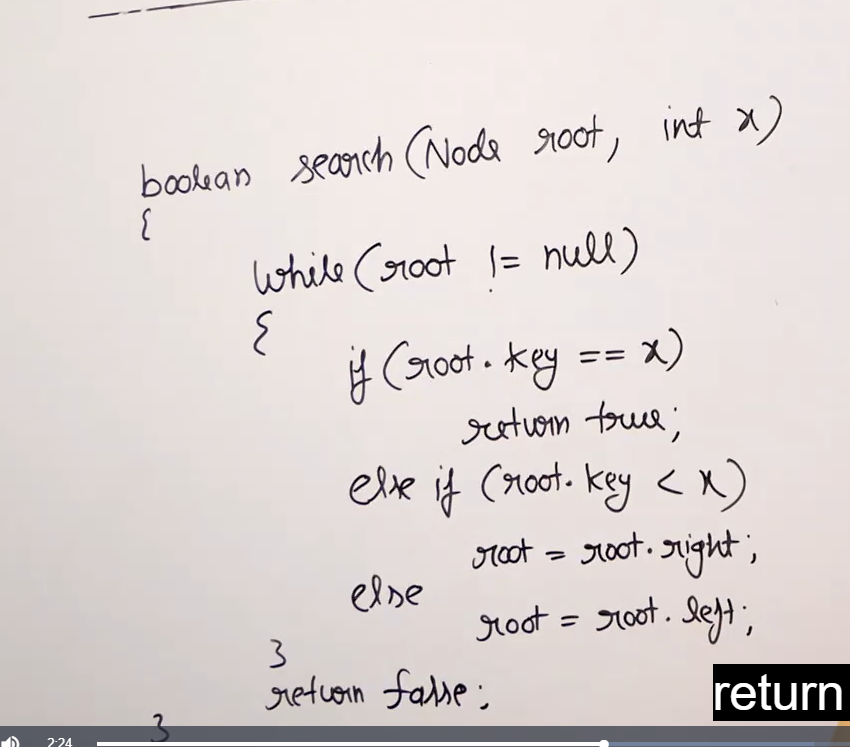 boolean search(Node root, int x)
{
while(root != null)
{
if (root.key == x)
return true;
else if (root.key < x)
root = root.right;
else
root = root.left;
}
return false;
}
return
2:24